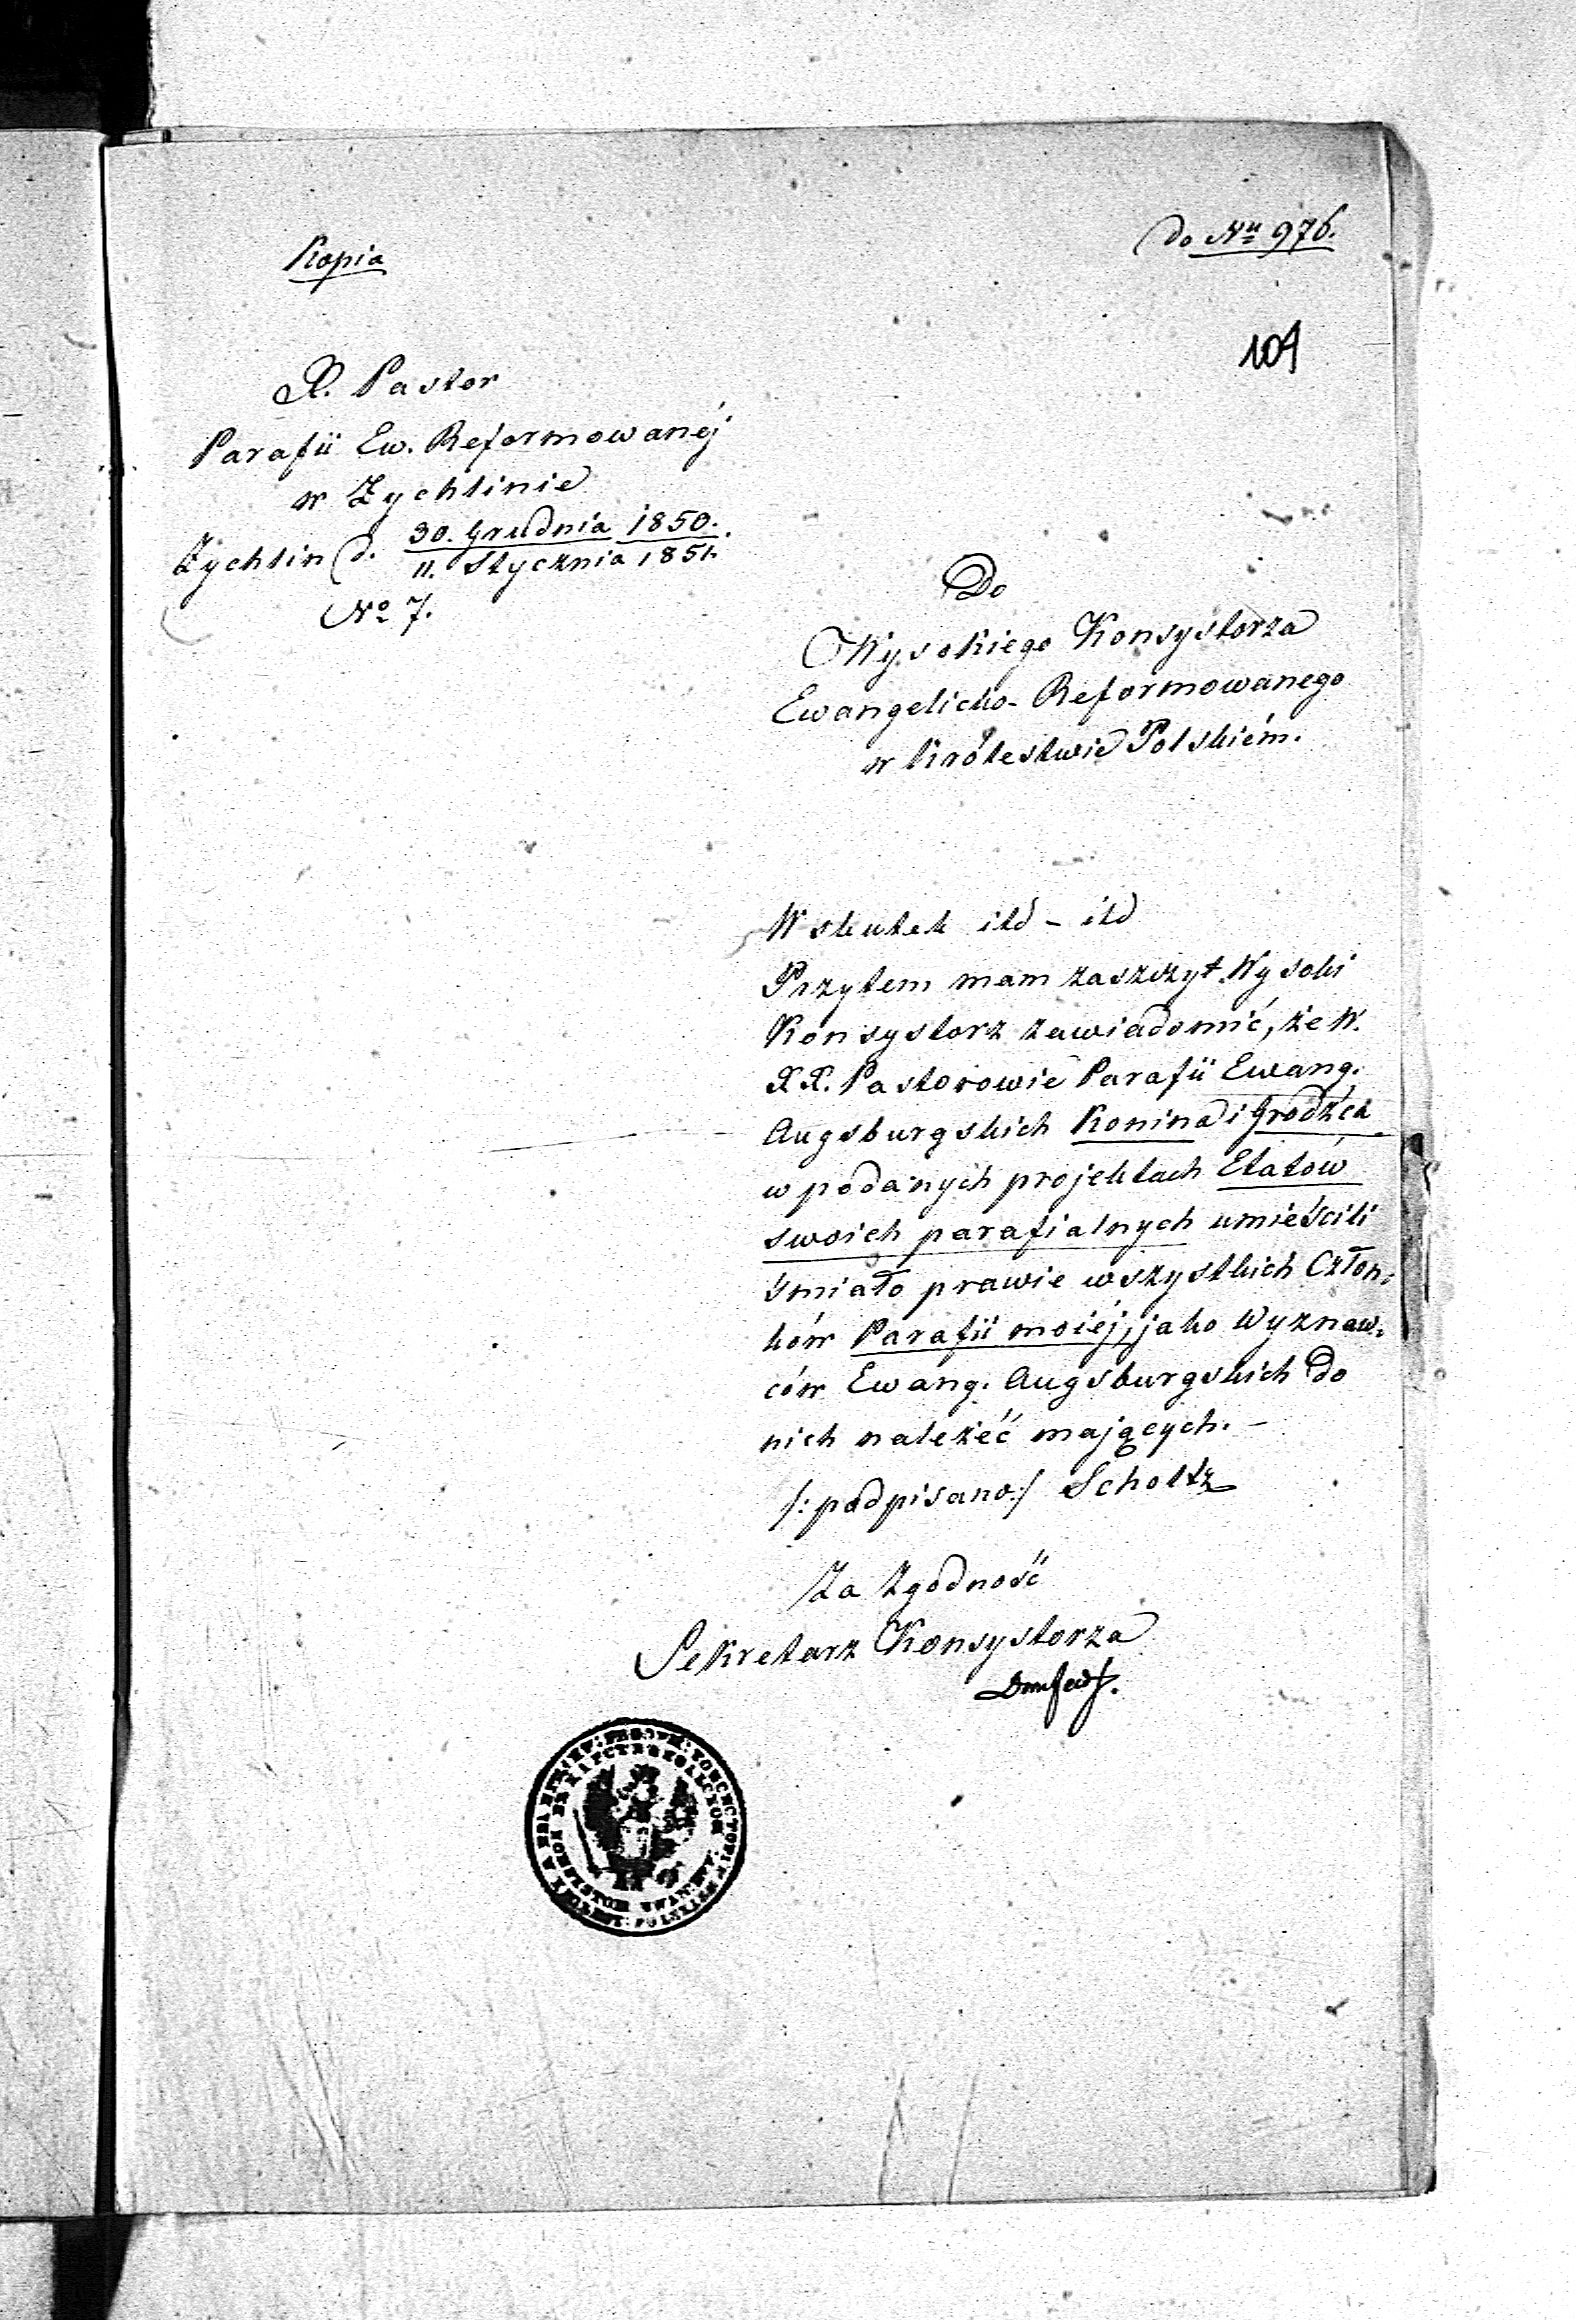 Kopia
do Nu 976.
104
X. Pastor
Parafii Ew. Reformowanéj
w Żychlinie
Żychlin d. 30. Grudnia 1850.
11. Stycznia 1851.
No 7.
Do
Wysokiego Konsystorza
Ewangelicko-Reformowanego
w Królestwie Polskiém.
W skutek itd - itd
Przytem mam zaszczyt Wysoki
Konsystorz zawiadomić, że W.
X.X. Pastorowie Parafii Ewang.
Augsburgskich Konina i Grodźca
w podanych projektach Etatów
swoich parafialnych umieścili
śmiało prawie wszystkich Człon-
ków Parafii moiéj, jako Wyznaw-
ców Ewang. Augsburgskich do
nich należéć mających. -
/: podpisano:/ Scholtz
Za Zgodność
Sekretarz Konsystorza